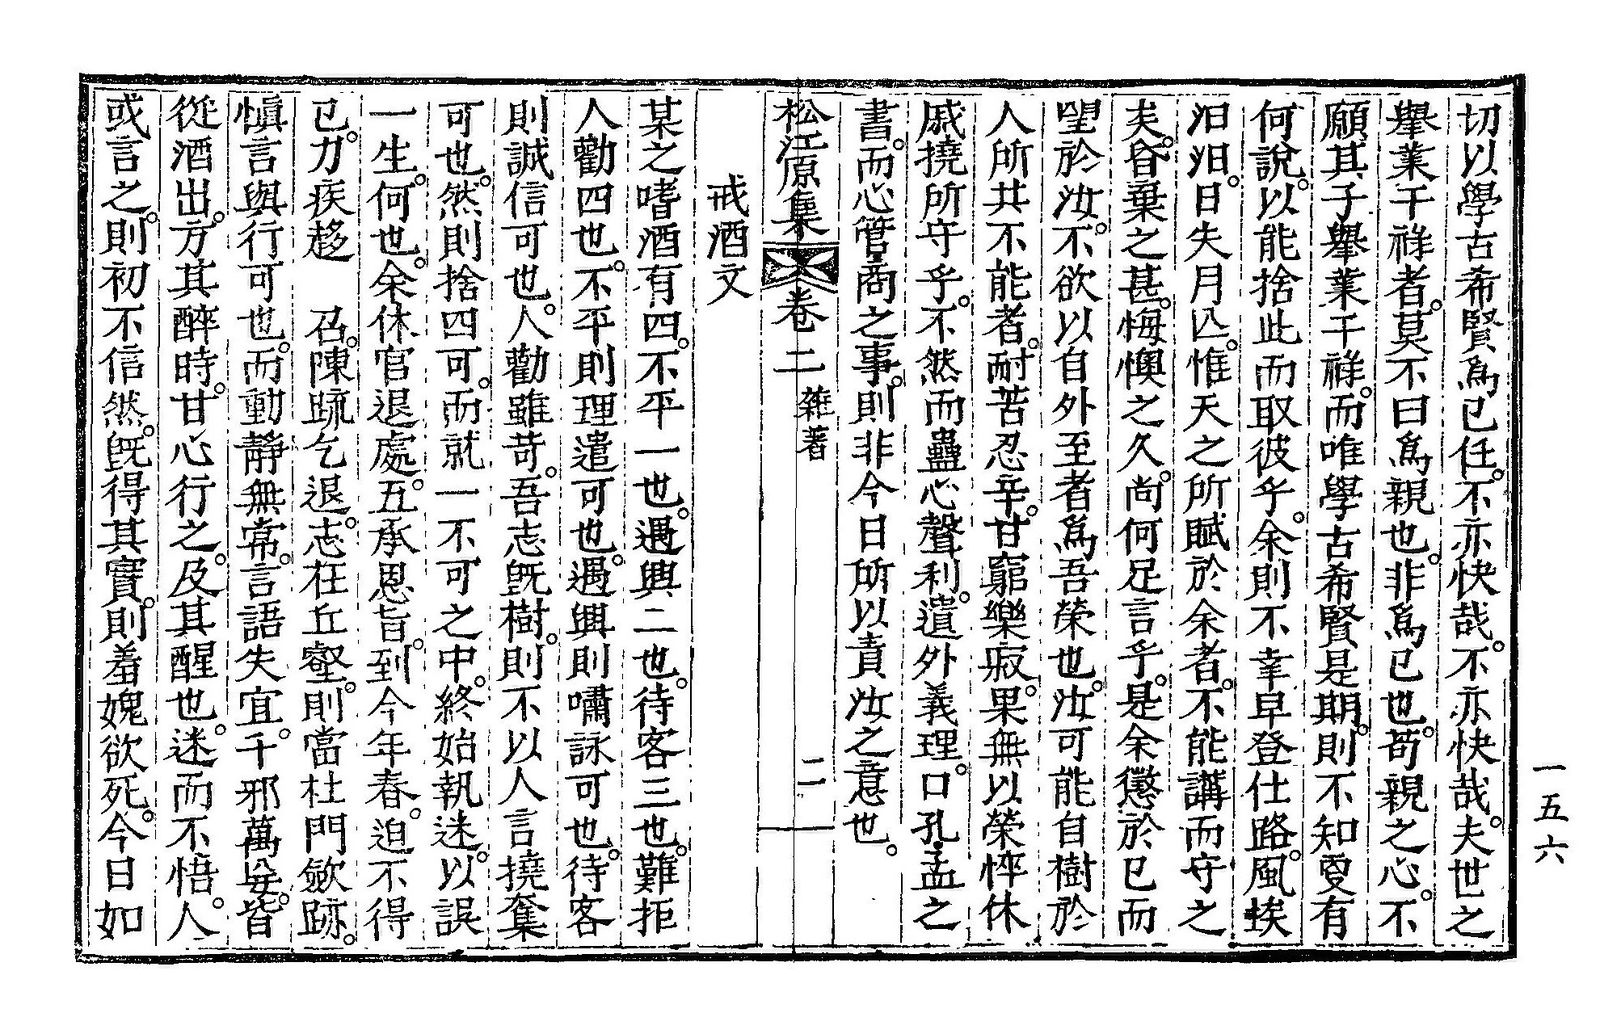 切以學古希賢爲己任。不亦快哉。不亦快哉。夫世之
擧業干祿者。莫不曰爲親也。非爲己也。苟親之心。不
願其子擧業干祿。而唯學古希賢是期。則不知更有
何說。以能捨此而取彼乎。余則不幸早登仕路。風埃
汨汨。日失月亾。惟天之所賦於余者。不能講而守之
矣。昏棄之甚。悔懊之久。尙何足言乎。是余懲於己而
望於汝。不欲以自外至者爲吾榮也。汝可能自樹於
人所共不能者。耐苦忍辛。甘窮樂寂。果無以榮悴休
戚撓所守乎。不然而蠱心聲利。遺外義理。口孔孟之
書。而心管商之事。則非今日所以責汝之意也。
松江原集 卷二 雜著 二
戒酒文
某之嗜酒有四。不平一也。遇興二也。待客三也。難拒
人勸四也。不平則理遣可也。遇興則嘯詠可也。待客
則誠信可也。人勸雖苛。吾志旣樹。則不以人言撓奪
可也。然則捨四可。而就一不可之中。終始執迷。以誤
一生。何也。余休官退處。五承恩旨。到今年春。迫不得
已。力疾趍 召。陳疏乞退。志在丘壑。則當杜門斂跡。
愼言與行可也。而動靜無常。言語失宜。千邪萬妄。皆
從酒出。方其醉時。甘心行之。及其醒也。迷而不悟。人
或言之。則初不信然。旣得其實。則羞媿欲死。今日如
一五六